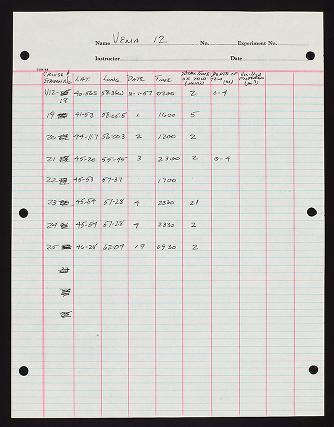 Name VEMA 12 No. Experiment No.
Instructor Date
CRUISE & STATION LAT LONG DATE TIME TOTAL TIME OF TOW (MINS) DEPTH OF TOW (M)
V12- 18 40-56S 58-36W 0200 2 0-4
19 41-53 1 1600 5
20 44-11.7 2 1200 2
21 45-20 55-45 3 2300 2 0-4
22 45-53 57-37 1700
23 45-54 57-28 4 2330 21
24 45-54 57-28 4 2330 2
25 46-28 62-09 19 0930 2